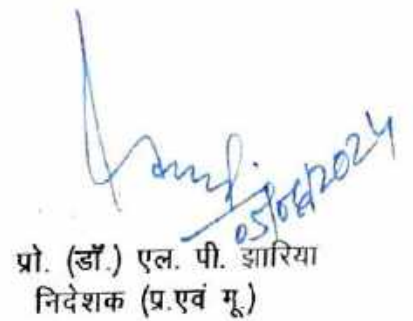 05/06/2024
प्रो. (डॉ.) एल. पी. झारिया
निदेशक (प्र.एवं मू.)